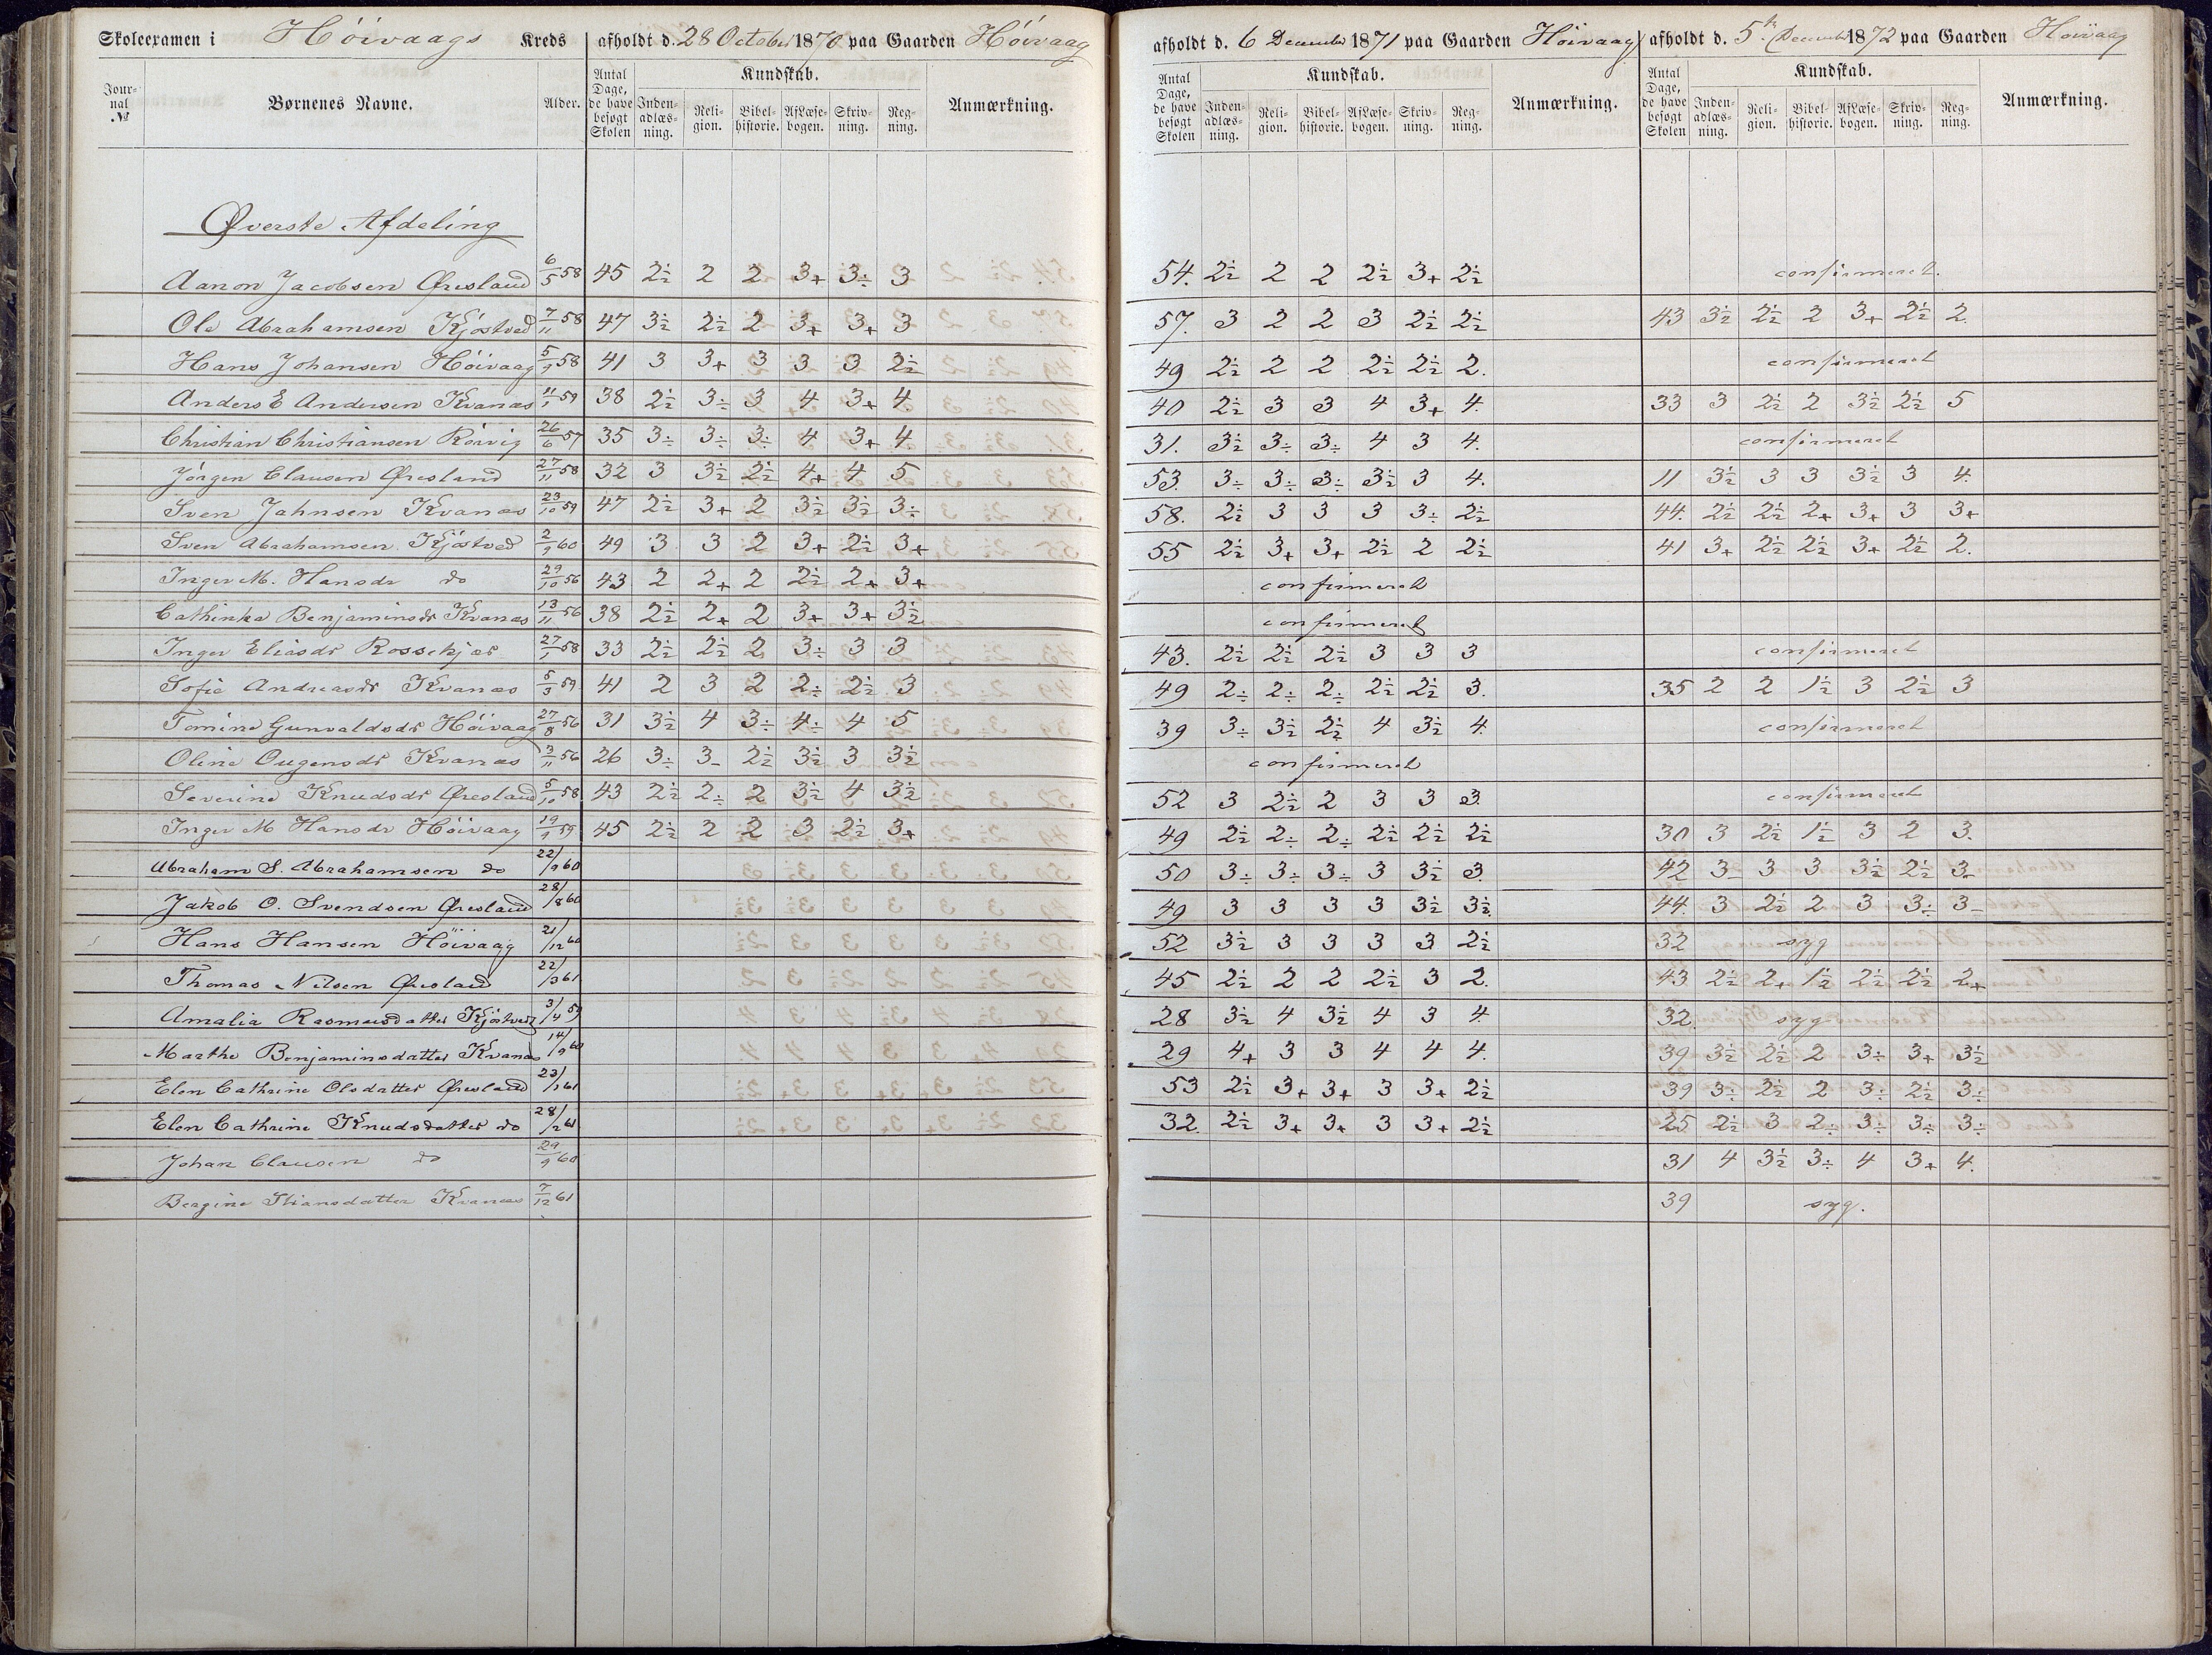 Skoleexamen i Höivaags Kreds afholdt d. 28 October 1870 paa Gaarden Höivaag afholdt d. 6 December 1871 paa Gaarden Höivaag afholdt d. 5te December 1872 paa Gaarden Höivaag
Journal № Børnenes Navne. Alder. Antal Dage, de have besøgt Skolen Kundskab. Indenadlæsning. Religion. Bibelhistorie. AfLæsebogen. Skrivning. Regning. Anmærkning. Antal Dage, de have besøgt Skolen Kundskab. Indenadlæsning. Religion. Bibelhistorie. AfLæsebogen. Skrivning. Regning. Anmærkning. Antal Dage, de have besøgt Skolen Kundskab. Indenadlæsning. Religion. Bibelhistorie. AfLæsebogen. Skrivning. Regning. Anmærkning.
Øverste Afdeling
Aanon Jacobsen Øresland 6/5 58 45 2½ 2 2 3+ 3÷ 3 54. 2½ 2 2 2½ 3+ 2½ confirmeret.
Ole Abrahamsen Kjöstved 7/11 58 47 3½ 2½ 2 3+ 3+ 3 57. 3 2 2 3 2½ 2½ 43 3½ 2½ 2 3+ 2½ 2.
Hans Johansen Höivaag 5/9 58 41 3 3+ 3 3 3 2½ 49 2½ 2 2 2½ 2½ 2. confirmeret
Anders E Andersen Kvanæs 11/1 59 38 2½ 3÷ 3 4 3+ 4. 40 2½ 3 3 4 3+ 4. 33 3 2½ 2 3½ 2½ 5
Christian Christiansen Röivig 26/6 57 35 3÷ 3÷ 3÷ 4 3+ 4. 31. 3½ 3÷ 3÷ 4 3 4. confirmeret
Jörgen Clausen Øresland 27/11 58 32 3 3½ 2½ 4+ 4 5 53. 3÷ 3÷ 3÷ 3½ 3 4. 11 3½ 3 3 3½ 3 4.
Sven Jahnsen Kvanæs 23/10 59 47 2½ 3+ 2 3½ 3½ 3÷ 58. 2½ 3 3 3 3÷ 2½ 44. 2½ 2½ 2+ 3+ 3 3+
Sven Abrahamsen Kjöstved 2/9 60 49 3 3 2 3+ 2½ 3+ 55 2½ 3+ 3+ 2½ 2 2½ 41 3+ 2½ 2½ 3+ 2½ 2.
Inger M. Hansdr do 29/10 56 43 2 2+ 2 2½ 2+ 3+ confirmeret
Cathinka Benjaminsdr Kvanæs 13/11 56 38 2½ 2+ 2 3+ 3+ 3½ confirmeret
Inger Eliasdr Rossekjær 27/1 58 33 2½ 2½ 2 3÷ 3 3 43. 2½ 2½ 2½ 3 3 3 confirmeret
Sofie Andreasdr Kvanæs 5/3 59 41 2 3 2 2÷ 2½ 3 49 2÷ 2÷ 2÷ 2½ 2½ 3. 35 2 2 1½ 3 2½ 3
Tomine Gunvaldsdr Höivaag 27/8 56 31 3½ 4 3÷ 4÷ 4 5 39 3÷ 3½ 2½ 4 3½ 4. confirmeret
Oline Ougensdr Kvanæs 3/11 56 26 3÷ 3- 2½ 3½ 3 3½ confirmeret
Severine Knudsdr Øresland 5/10 58 43 2½ 2÷ 2 3½ 4 3½ 52 3 2½ 2 3 3 3. confirmeret
Inger M Hansdr Höivaag 19/9 59 45 2½ 2 2 3 2½ 3+ 49 2½ 2÷ 2÷ 2½ 2½ 2½ 30 3 2½ 1½ 3 2 3.
Abraham S. Abrahamsen do 22/9 60 50 3÷ 3÷ 3÷ 3 3½ 3. 42 3- 3 3 3½ 2½ 3-
Jakob O. Svendsen Øresland 28/8 60 49 3 3 3 3 3½ 3½ 44. 3 2½ 2 3 3÷ 3-
Hans Hansen Höivaag 21/12 60 52 3½ 3 3 3 3 2½ 32 syg
Thomas Nilsen Øresland 22/3 61 45 2½ 2 2 2½ 3 2. 43 2½ 2+ 1½ 2½ 2½ 2+
Amalia Rasmusdatter Kjöstved 3/4 59 28 3½ 4 3½ 4 3 4. 32. syg
Marthe Benjaminsdatter Kvanæs 14/9 60 29 4+ 3 3 4 4 4. 39 3½ 2½ 2 3÷ 3+ 3½
Elen Cathrine Olsdatter Øresland 23/3 61 53 2½ 3+ 3+ 3 3+ 2½ 39 3÷ 2½ 2 3÷ 2½ 3÷
Elen Cathrine Knudsdatter do 28/2 61 32. 2½ 3+ 3+ 3 3+ 2½ 25 2½ 3 2÷ 3÷ 3÷ 3÷
Johan Clausen do 29/9 60 31 4 3½ 3÷ 4 3+ 4.
Bergine Stiansdatter Kvanæs 7/12 61 39 syg.